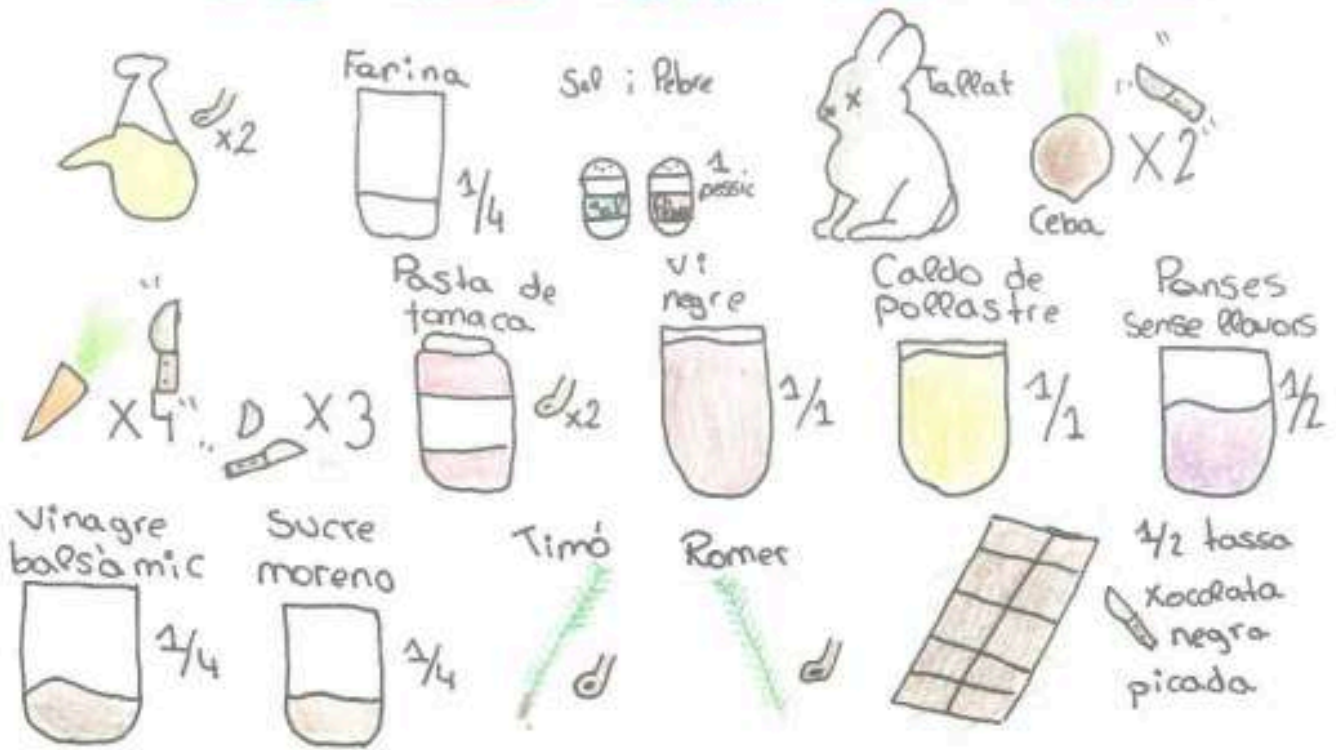 x2
Farina
1/4
Sal i Pebre
Sal
1
pessic
Tallat
X2
Ceba
X4
X3
Pasta de
tomaca
x2
Vi
negre
1/1
Caldo de
pollastre
1/1
Panses
sense llavors
1/2
Vinagre
balsàmic
1/4
Sucre
moreno
1/4
Timó
Romer
1/2 tassa
xocolata
negra
picada